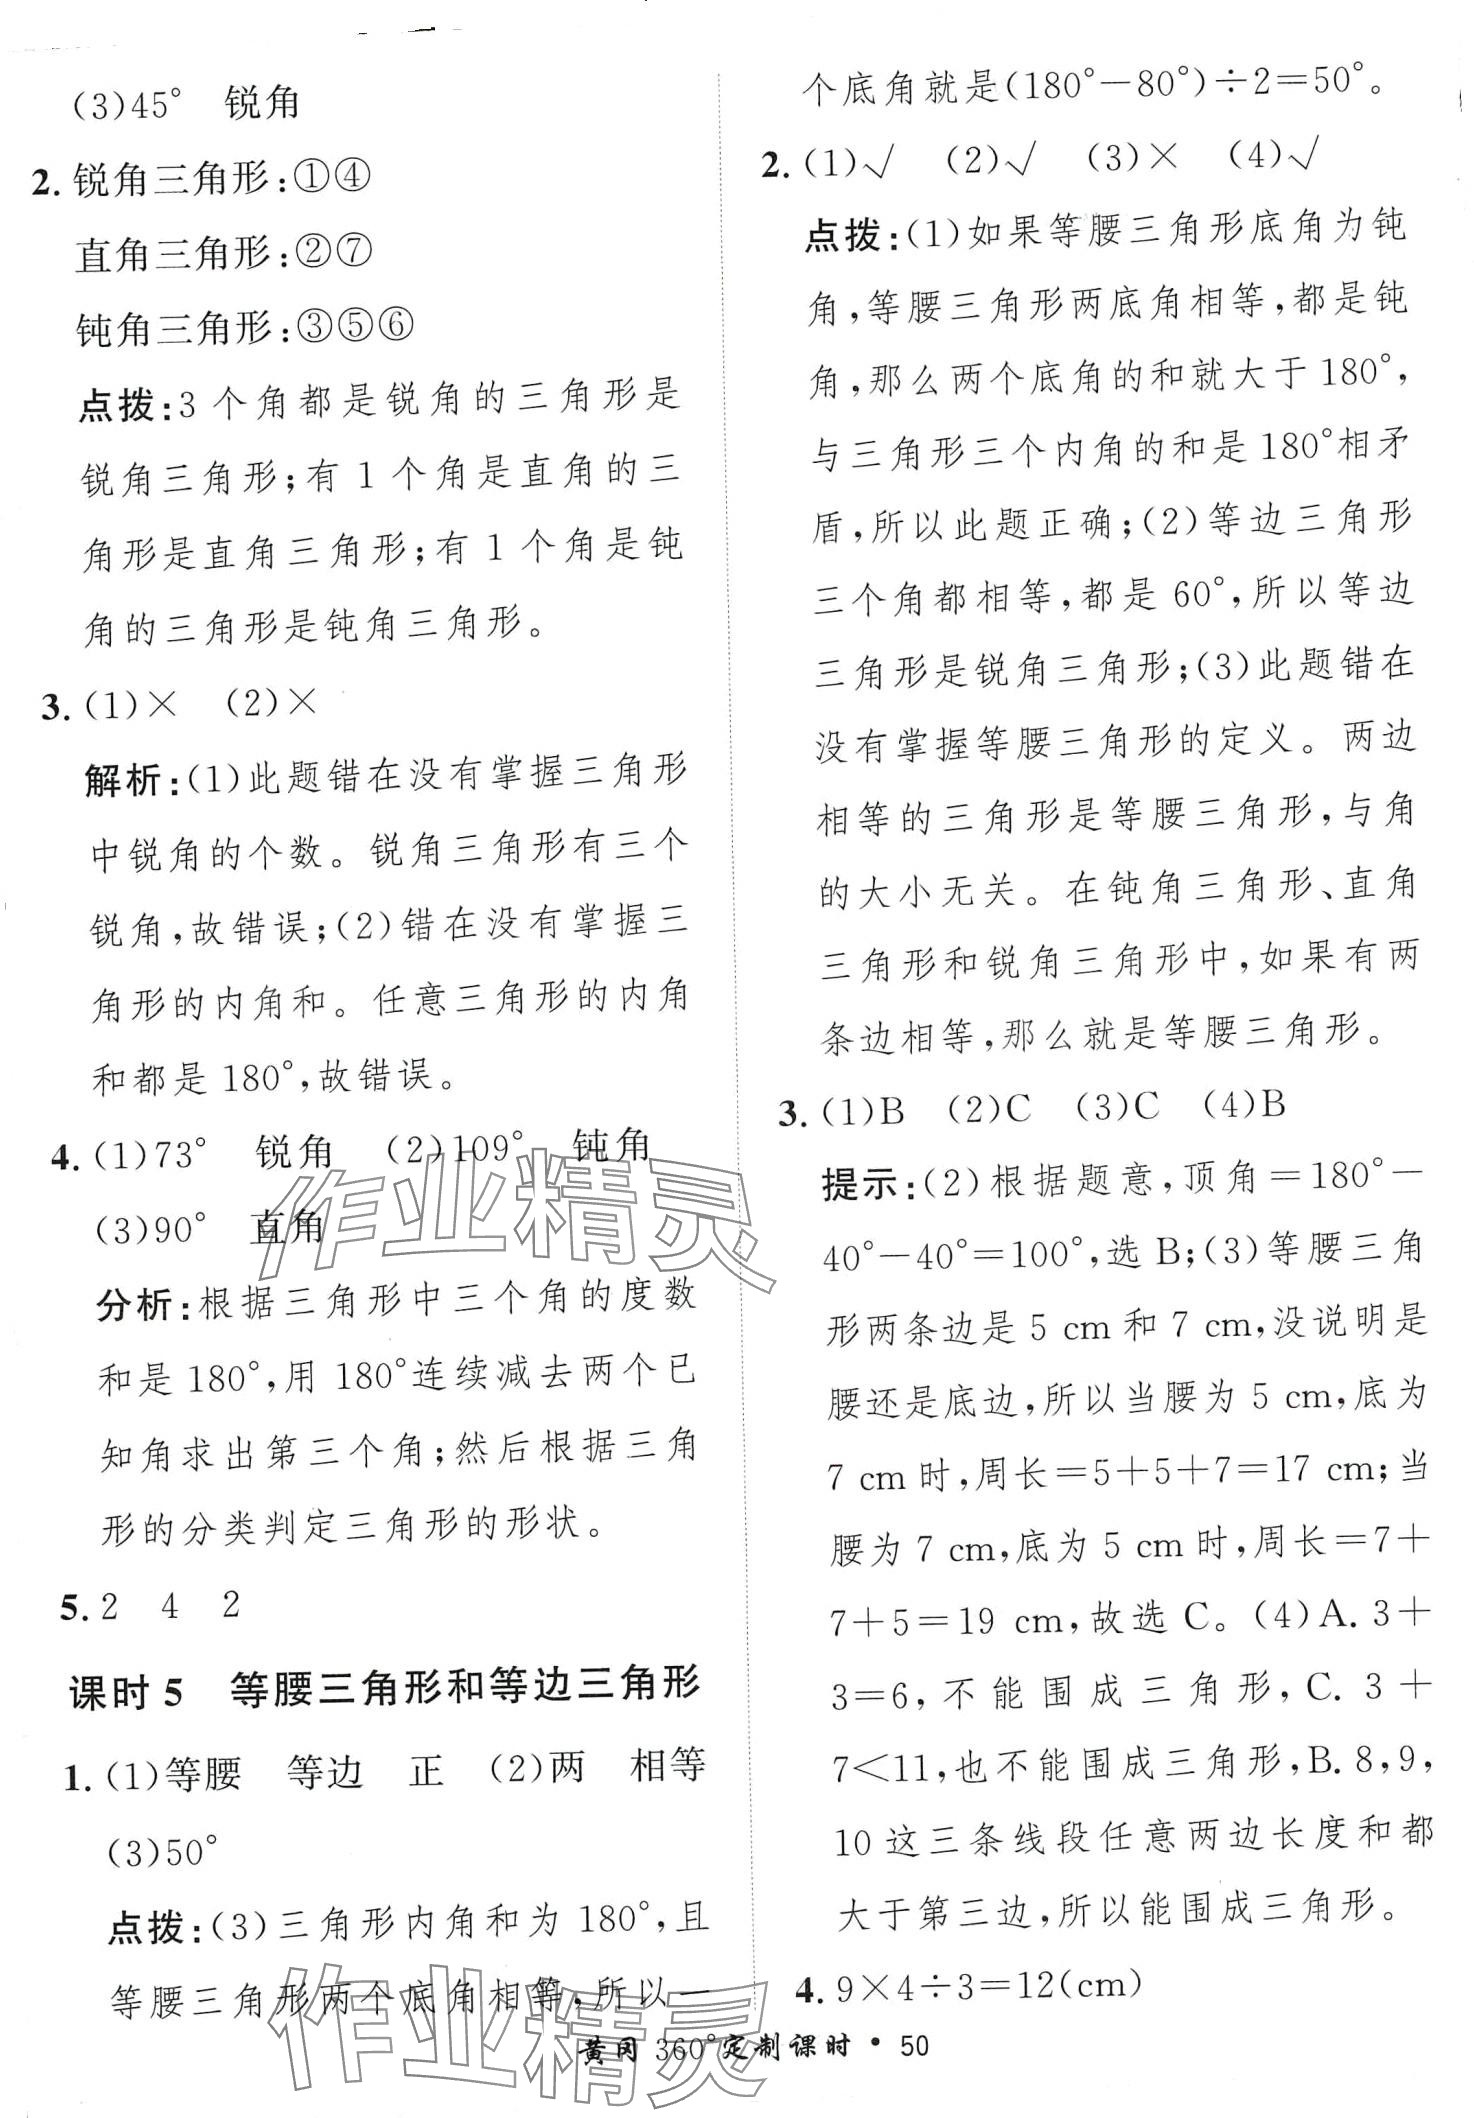 (3)45° 锐角
2. 锐角三角形:①④
直角三角形:②⑦
钝角三角形:③⑤⑥
点拨:3个角都是锐角的三角形是
锐角三角形;有1个角是直角的三
角形是直角三角形;有1个角是钝
角的三角形是钝角三角形。
3. (1)× (2)×
解析:(1)此题错在没有掌握三角形
中锐角的个数。锐角三角形有三个
锐角,故错误;(2)错在没有掌握三
角形的内角和。任意三角形的内角
和都是180°,故错误。
4. (1)73° 锐角 (2)109° 钝角
(3)90° 直角
分析:根据三角形中三个角的度数
和是180°,用180°连续减去两个已
知角求出第三个角;然后根据三角
形的分类判定三角形的形状。
5. 2 4 2
课时5 等腰三角形和等边三角形
1. (1)等腰 等边 正 (2)两 相等
(3)50°
点拨:(3)三角形内角和为180°,且
等腰三角形两个底角相等,所以一
个底角就是(180°-80°)÷2=50°。
2. (1)√ (2)√ (3)× (4)√
点拨:(1)如果等腰三角形底角为钝
角,等腰三角形两底角相等,都是钝
角,那么两个底角的和就大于180°,
与三角形三个内角的和是180°相矛
盾,所以此题正确;(2)等边三角形
三个角都相等,都是60°,所以等边
三角形是锐角三角形;(3)此题错在
没有掌握等腰三角形的定义。两边
相等的三角形是等腰三角形,与角
的大小无关。在钝角三角形、直角
三角形和锐角三角形中,如果有两
条边相等,那么就是等腰三角形。
3. (1)B (2)C (3)C (4)B
提示:(2)根据题意,顶角=180°-
40°-40°=100°,选B;(3)等腰三角
形两条边是5 cm和7 cm,没说明是
腰还是底边,所以当腰为5 cm,底为
7 cm时,周长=5+5+7=17 cm;当
腰为7 cm,底为5 cm时,周长=7+
7+5=19 cm,故选C。(4)A. 3+
3=6,不能围成三角形,C. 3+
7<11,也不能围成三角形,B. 8,9,
10这三条线段任意两边长度和都
大于第三边,所以能围成三角形。
4. 9×4÷3=12(cm)
黄冈360°定制课时·50
作业精灵
作业精灵